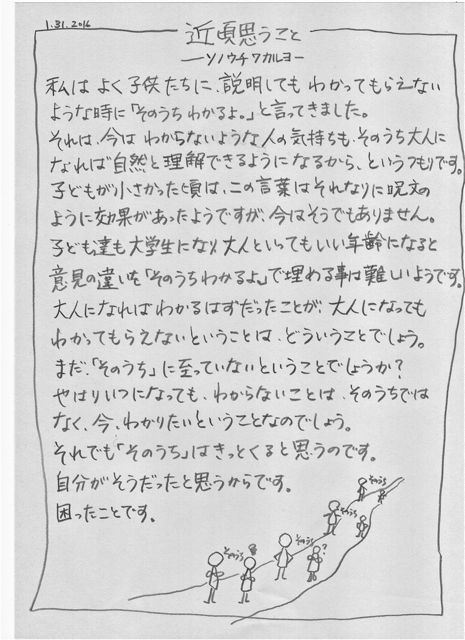 1.31.2016
近頃思うこと
—ソノウチワカルヨー
私は よく子供たちに、説明しても わかってもらえない
ような時に「そのうち わかるよ。」と言ってきました。
それは、今は わからないような人の気持ちも、そのうち大人に
なれば自然と理解できるようになるから、というつもりです。
子どもが小さかった頃は、この言葉はそれなりに呪文の
ように効果があったようですが、今はそうでもありません。
子ども達も大学生になり大人といってもいい年齢になると
意見の違いを「そのうちわかるよ。」で埋める事は難しいようです。
大人になればわかるはずだったことが、大人になっても
わかってもらえないということは、どういうことでしょう。
まだ、「そのうち」に至っていないということでしょうか?
やはりいつになっても、わからないことは、そのうちでは
なく、今、わかりたいということなのでしょう。
それでも「そのうち」はきっとくると思うのです。
自分がそうだったと思うからです。
困ったことです。
そのうち
そのうち
そのうち
?
そのうち